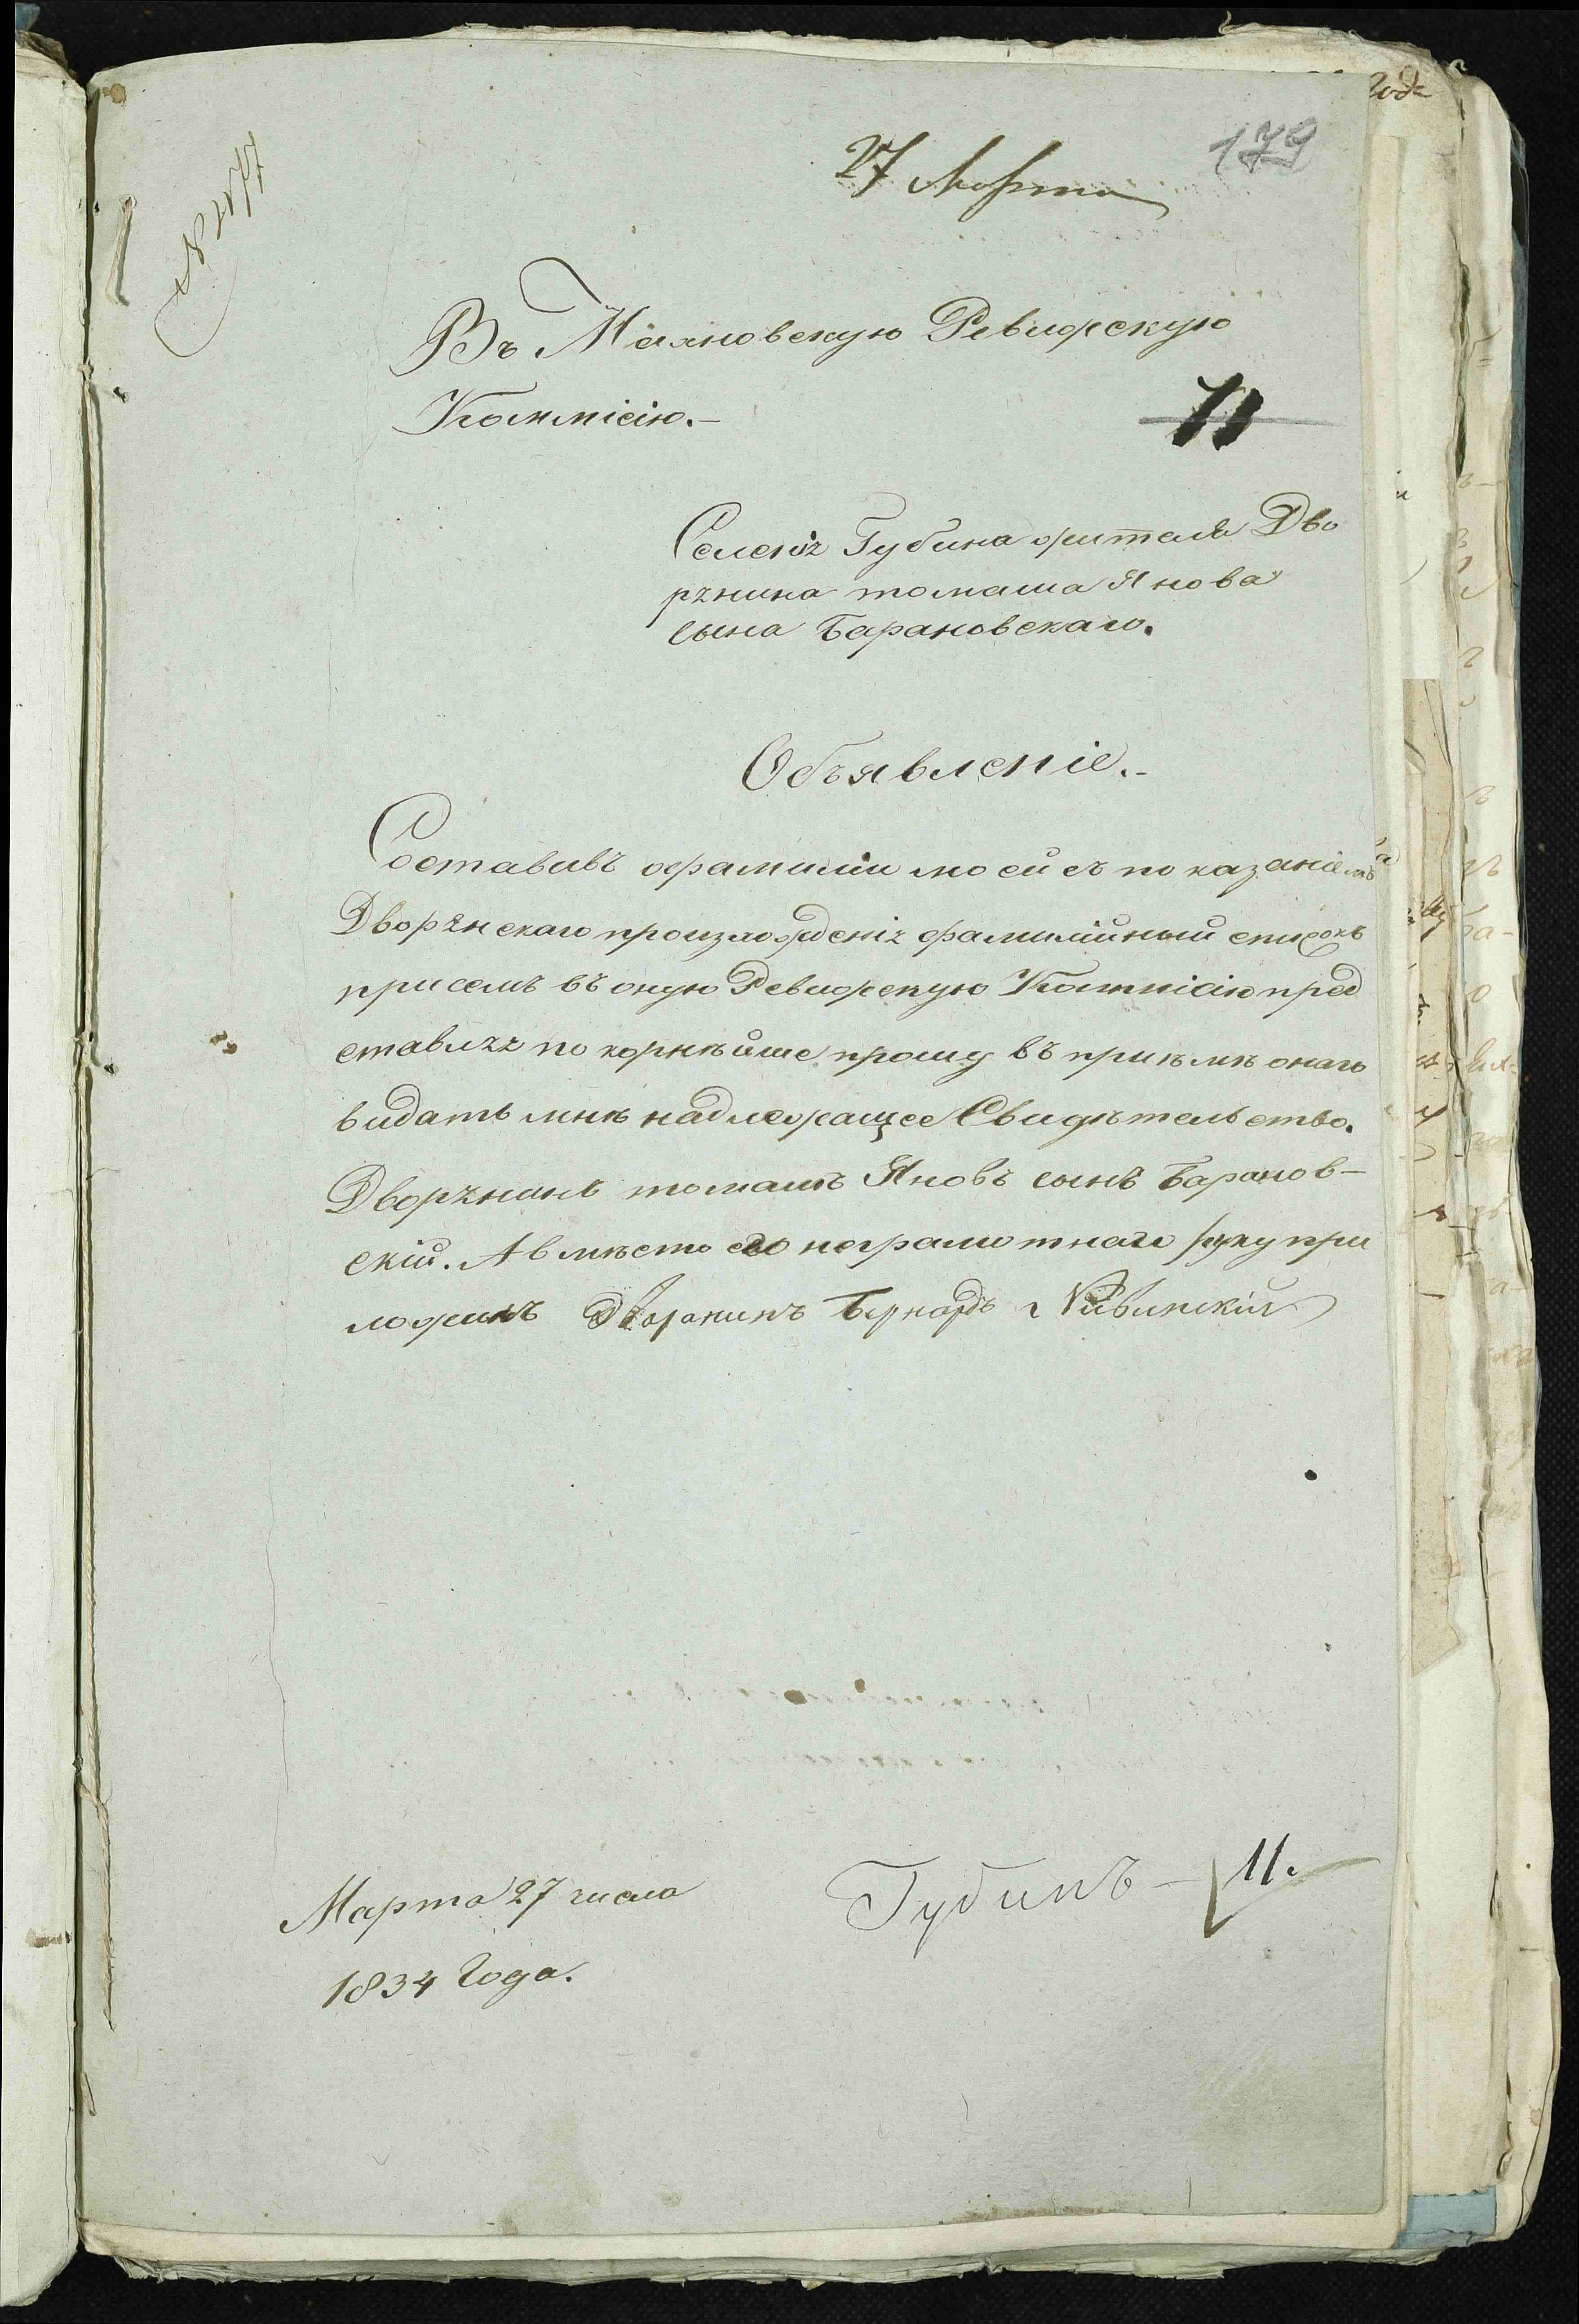 27 Марта
179
№ 2177
Въ Махновскую Ревизорскую
Коммісію.-
11
Селенія Губина жителя Дво
рянина томаша Янова
сына Барановскаго.
Объявленіе.-
Составивъ о фамиліи моей съ показаніемъ
Дворянскаго произхожденія фамилійный списокъ
при семъ въ оную Ревизорскую Коммісію пред
ставляя покорнѣйше прошу въ приѣмѣ онаго
видать мнѣ надлежащее Свидѣтельство.
Дворянинъ томашъ Яновъ сынъ Баранов-
скій. А вмѣсто его неграмотнаго руку при
ложилъ Дворанинъ Бернардъ
Марта 27 числа
1834 Года.
Губинъ - 11.